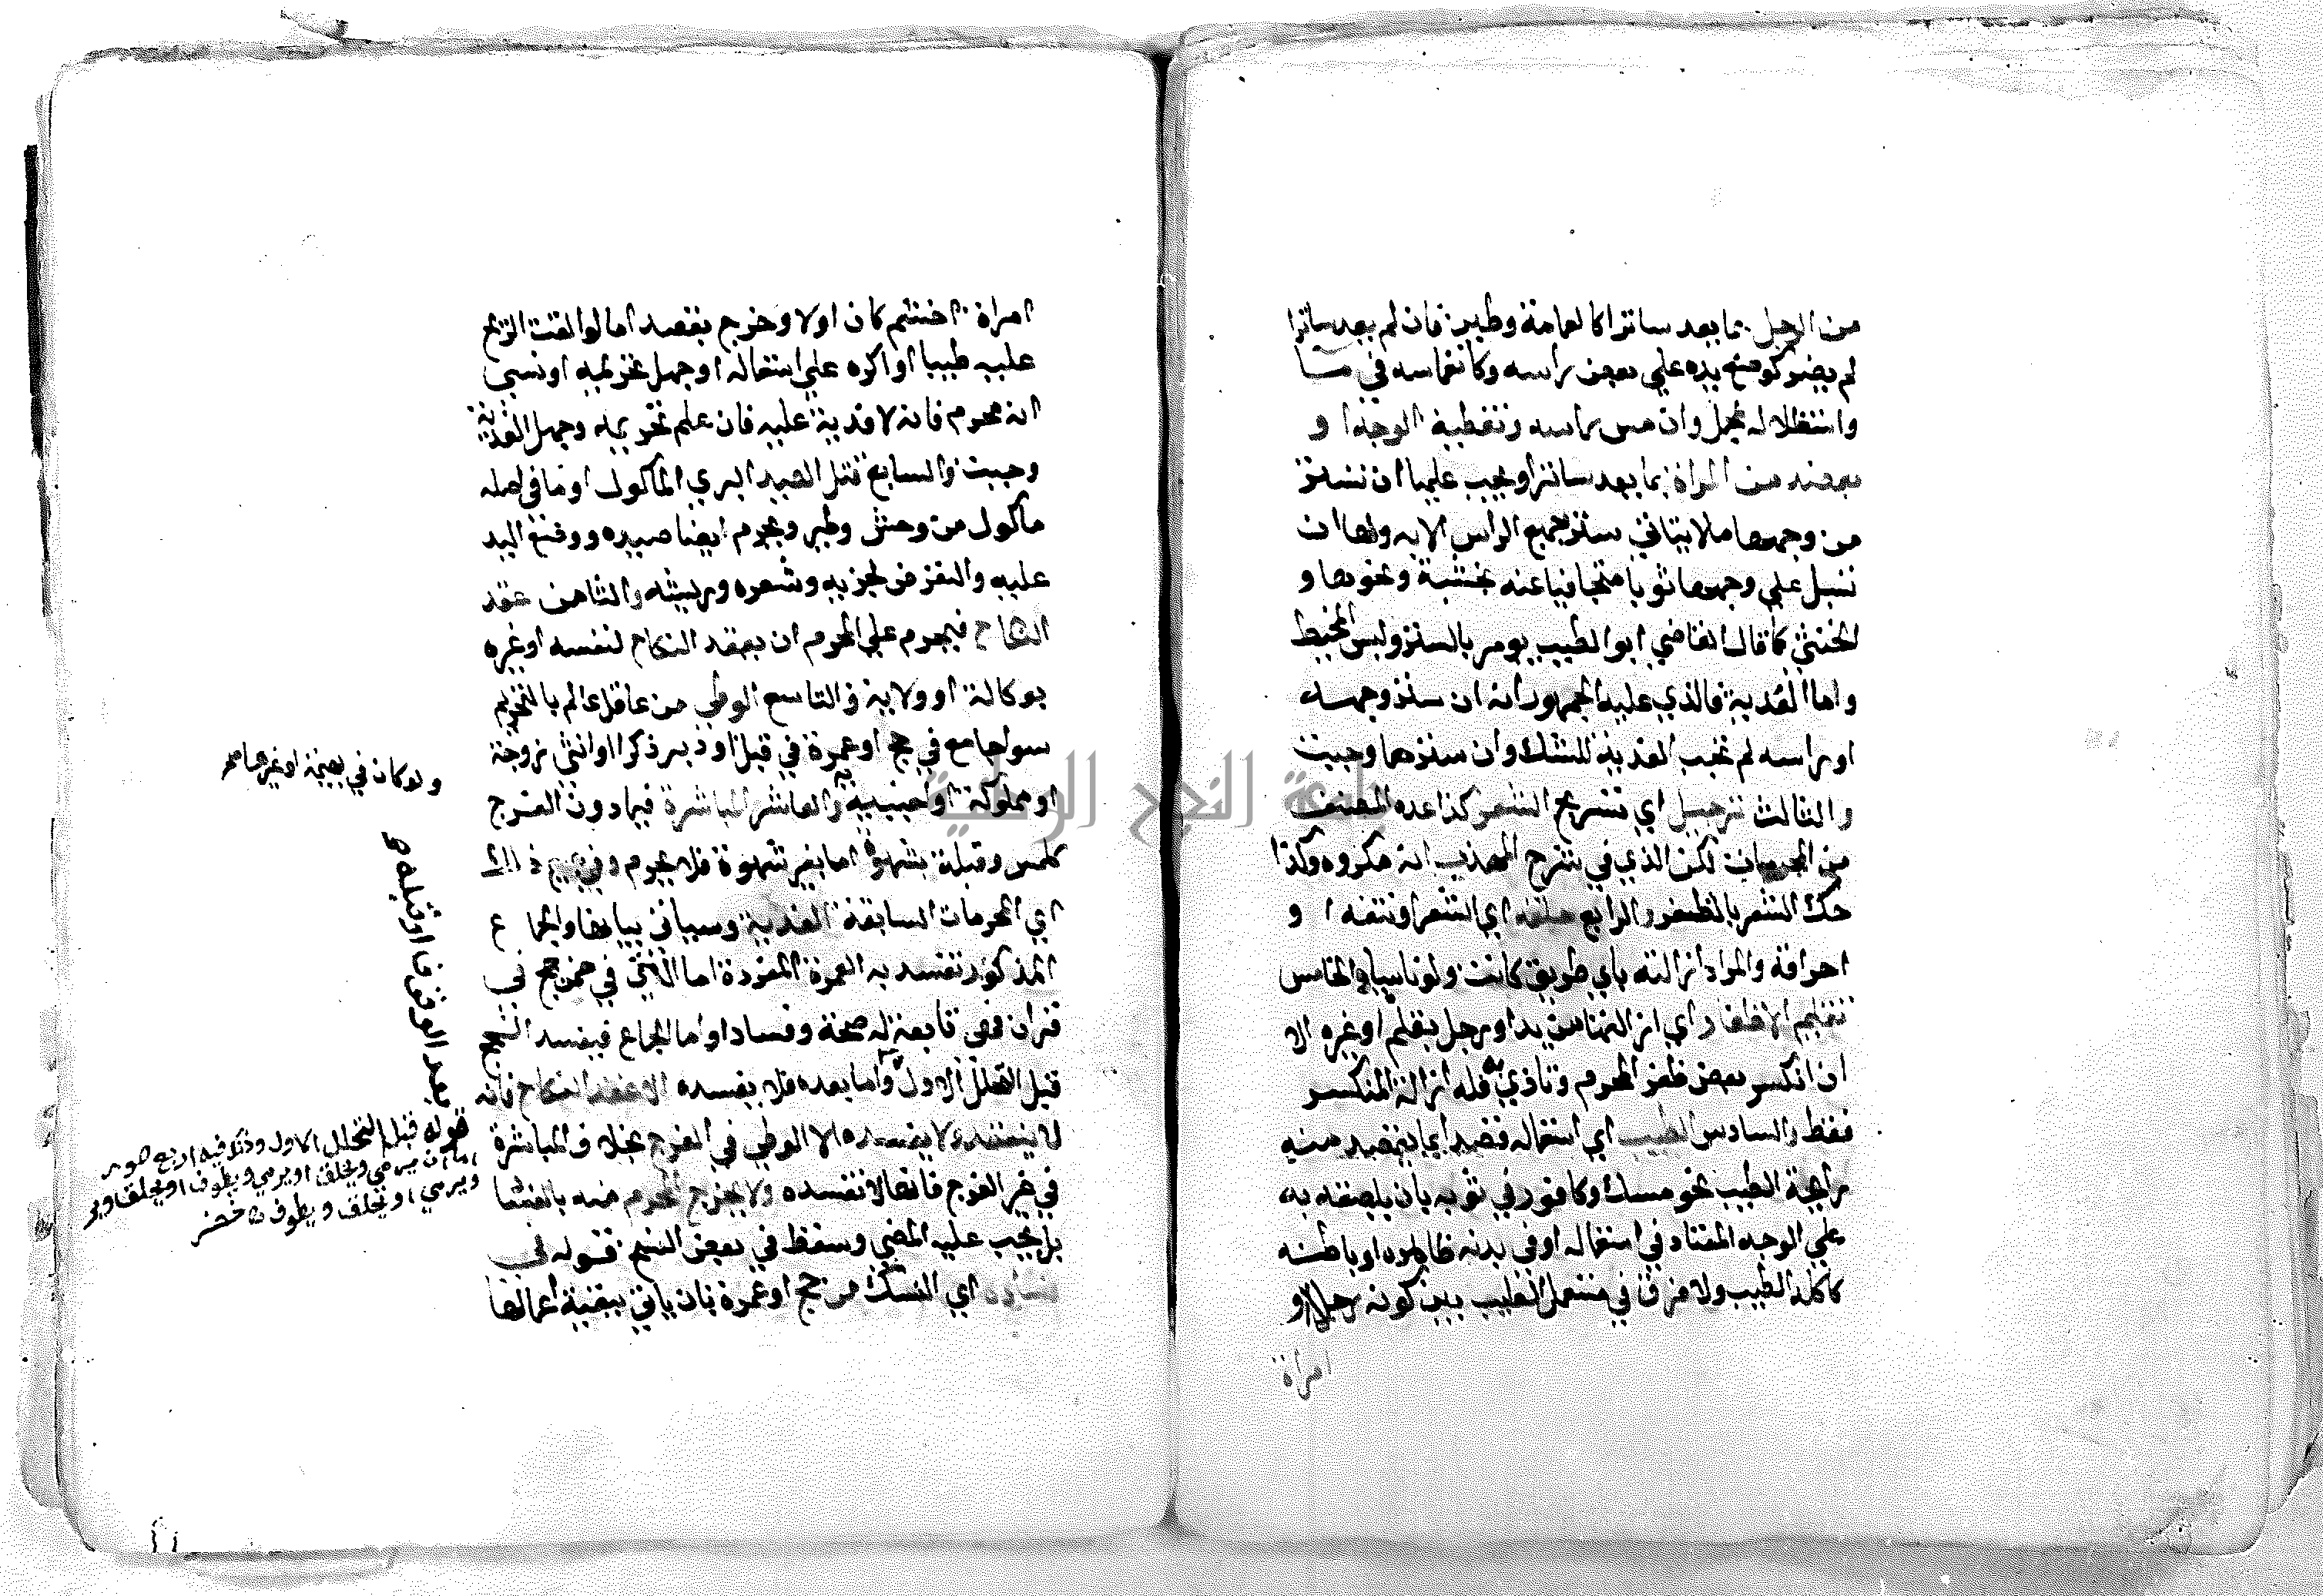 من الرجل بما يعد ساترا كالعمامة وطين فان لم يعد ساترا
لم يضر كوضع يده علي بعض راسه وكانغماسه في ما
واستظلاله بمحمل وان مس راسه وتغطية الوجه او
بعضه من المراة بما يعد ساترا ويجب عليها ان تستر
من وجهها ما لا يتاتي ستر جميع الراس الا به ولها ان
تسبل علي وجهها ثوبا متجافيا عنه بخشبة ونحوها و
الخنثي كما قال القاضي ابو الطيب يومر بالستر ولبس المخيط
واما الفدية فالذي عليه الجمهور انه ان ستر وجهه
او راسه لم تجب الفدية للشك وان سترهما وجبت
والثالث ترجيل اي تسريح الشعر كذا عده المصنف
من المحرمات لكن الذي في شرح المهذب انه مكروه وكذا
حك الشعر بالظفر والرابع حلقه اي الشعر او نتفه ا و
احراقه والمراد ازالته باي طريق كانت ولو ناسيا والخامس
تقليم الاظفار اي ازالتها من يد او رجل بتقليم او غيره الا
ان انكسر بعض ظفر المحرم وتاذي به فله ازالة المنكسر
فقط والسادس الطيب اي استعماله قصدا بما يقصد منه
رايحة الطيب نحو مسك وكافور في ثوبه بان يلصقه به
علي الوجه المعتاد في استعماله او في بدنه ظاهره او باطنه
كاكله الطيب ولا فرق في مستعمل الطيب بين كونه رجلا او
امراة
امراة اخشم كان او لا وخرج بقصد اما لو القت الريح
عليه طيبا او اكره علي استعماله او جهل تحريمه او نسي
انه محرم فانه لا فدية عليه فان علم تحريمه وجهل الفدية
وجبت والسابع قتل الصيد البري المأكول او ما في اصله
مأكول من وحش وطير ويحرم ايضا صيده ووضع اليد
عليه والتعرض لجزيه وشعره وريشه والثامن عقد
النكاح فيحرم علي المحرم ان يعقد النكاح لنفسه او غيره
بوكالة او ولاية والتاسع الوطي من عاقل عالم بالتحريم
سوا جامع في حج او عمرة في قبل او دبر ذكرا او انثي زوجة
او مملوكة او اجنبية والعاشر المباشرة فيما دون الفرج
كلمس وقبلة بشهوة اما بغير شهوة فلا يحرم وفي جميع ذلك
اي المحرمات السابقة الفدية وسياتي بيانها والجماع
المذكور تفسد به العمرة المفردة اما التي في ضمن حج في
قران فهي تابعة له صحة وفسادا واما الجماع فيفسد الحج
قبل التحلل الاول واما بعده فلا يفسده الا عقد النكاح فانه
لا ينعقد ولا يفسده الا الوطي في الفرج بخلاف المباشرة
في غير الفرج فانها لا تفسده ولا يخرج المحرم منه بالفساد
بل يجب عليه المضي وسقط في بعض النسخ قوله في
فساده اي النسك من حج او عمرة بان ياتي ببقية اعمالها
ولو كان في بهيمة او غيرها
بعد الوقوف او قبله
قوله قبل التحلل الاول وذلك فيه اربع صور
اما ان يرمي ويحلق او يرمي ويطوف او يحلق
ويرمي او يحلق ويطوف خضر